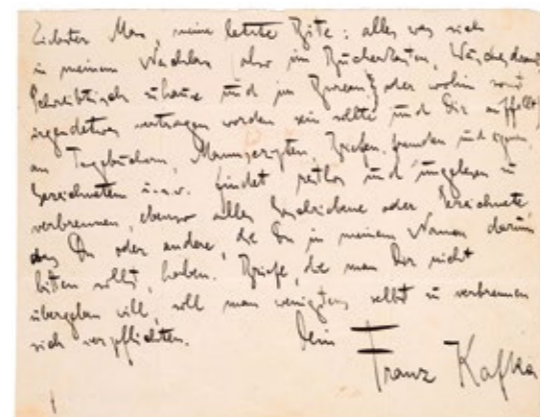 Liebster Max, meine letzte Bitte: alles was sich
in meinem Nachlass also im Bücherkasten, Wäscheschrank
Schreibtisch zuhause und im Bureau, oder wohin sonst
irgendetwas vertragen worden sein sollte und Dir auffällt)
an Tagebüchern, Manuscripten, Briefen, fremden und eignen,
Gezeichnetem u.s.w. findet restlos und ungelesen zu
verbrennen, ebenso alles Geschriebene oder Gezeichnete
das Du oder andre, die Du in meinem Namen darum
bitten sollst, haben. Briefe, die man Dir nicht
übergeben will, soll man wenigstens selbst zu verbrennen
sich verpflichten.
Dein
Franz Kafka